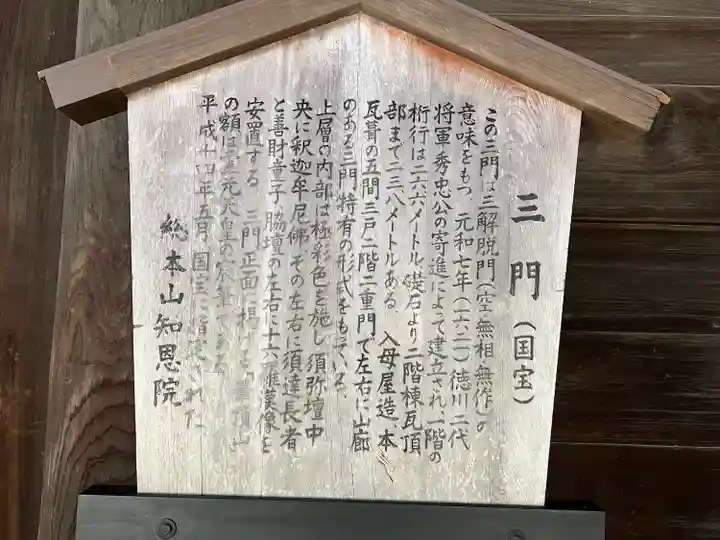 三門(国宝)
この三門は三解脱門(空・無相・無作)の
意味をもつ 元和七年(一六二一)徳川二代
将軍秀忠公の寄進によって建立され、一階の
桁行は二六・六メートル 礎石より二階棟瓦頂
部まで二三・八メートルある。 入母屋造 本
瓦葺の五間三戸二階二重門で左右に山廊
のある三門特有の形式をもっている。
上層の内部は極彩色を施し 須弥壇中
央に釈迦牟尼佛 その左右に須達長者
と善財童子 脇壇の左右に十六羅漢像を
安置する 三門正面に掲げる 華頂山
の額は霊元天皇の宸筆である
平成十四年五月 国宝に指定された
総本山知恩院